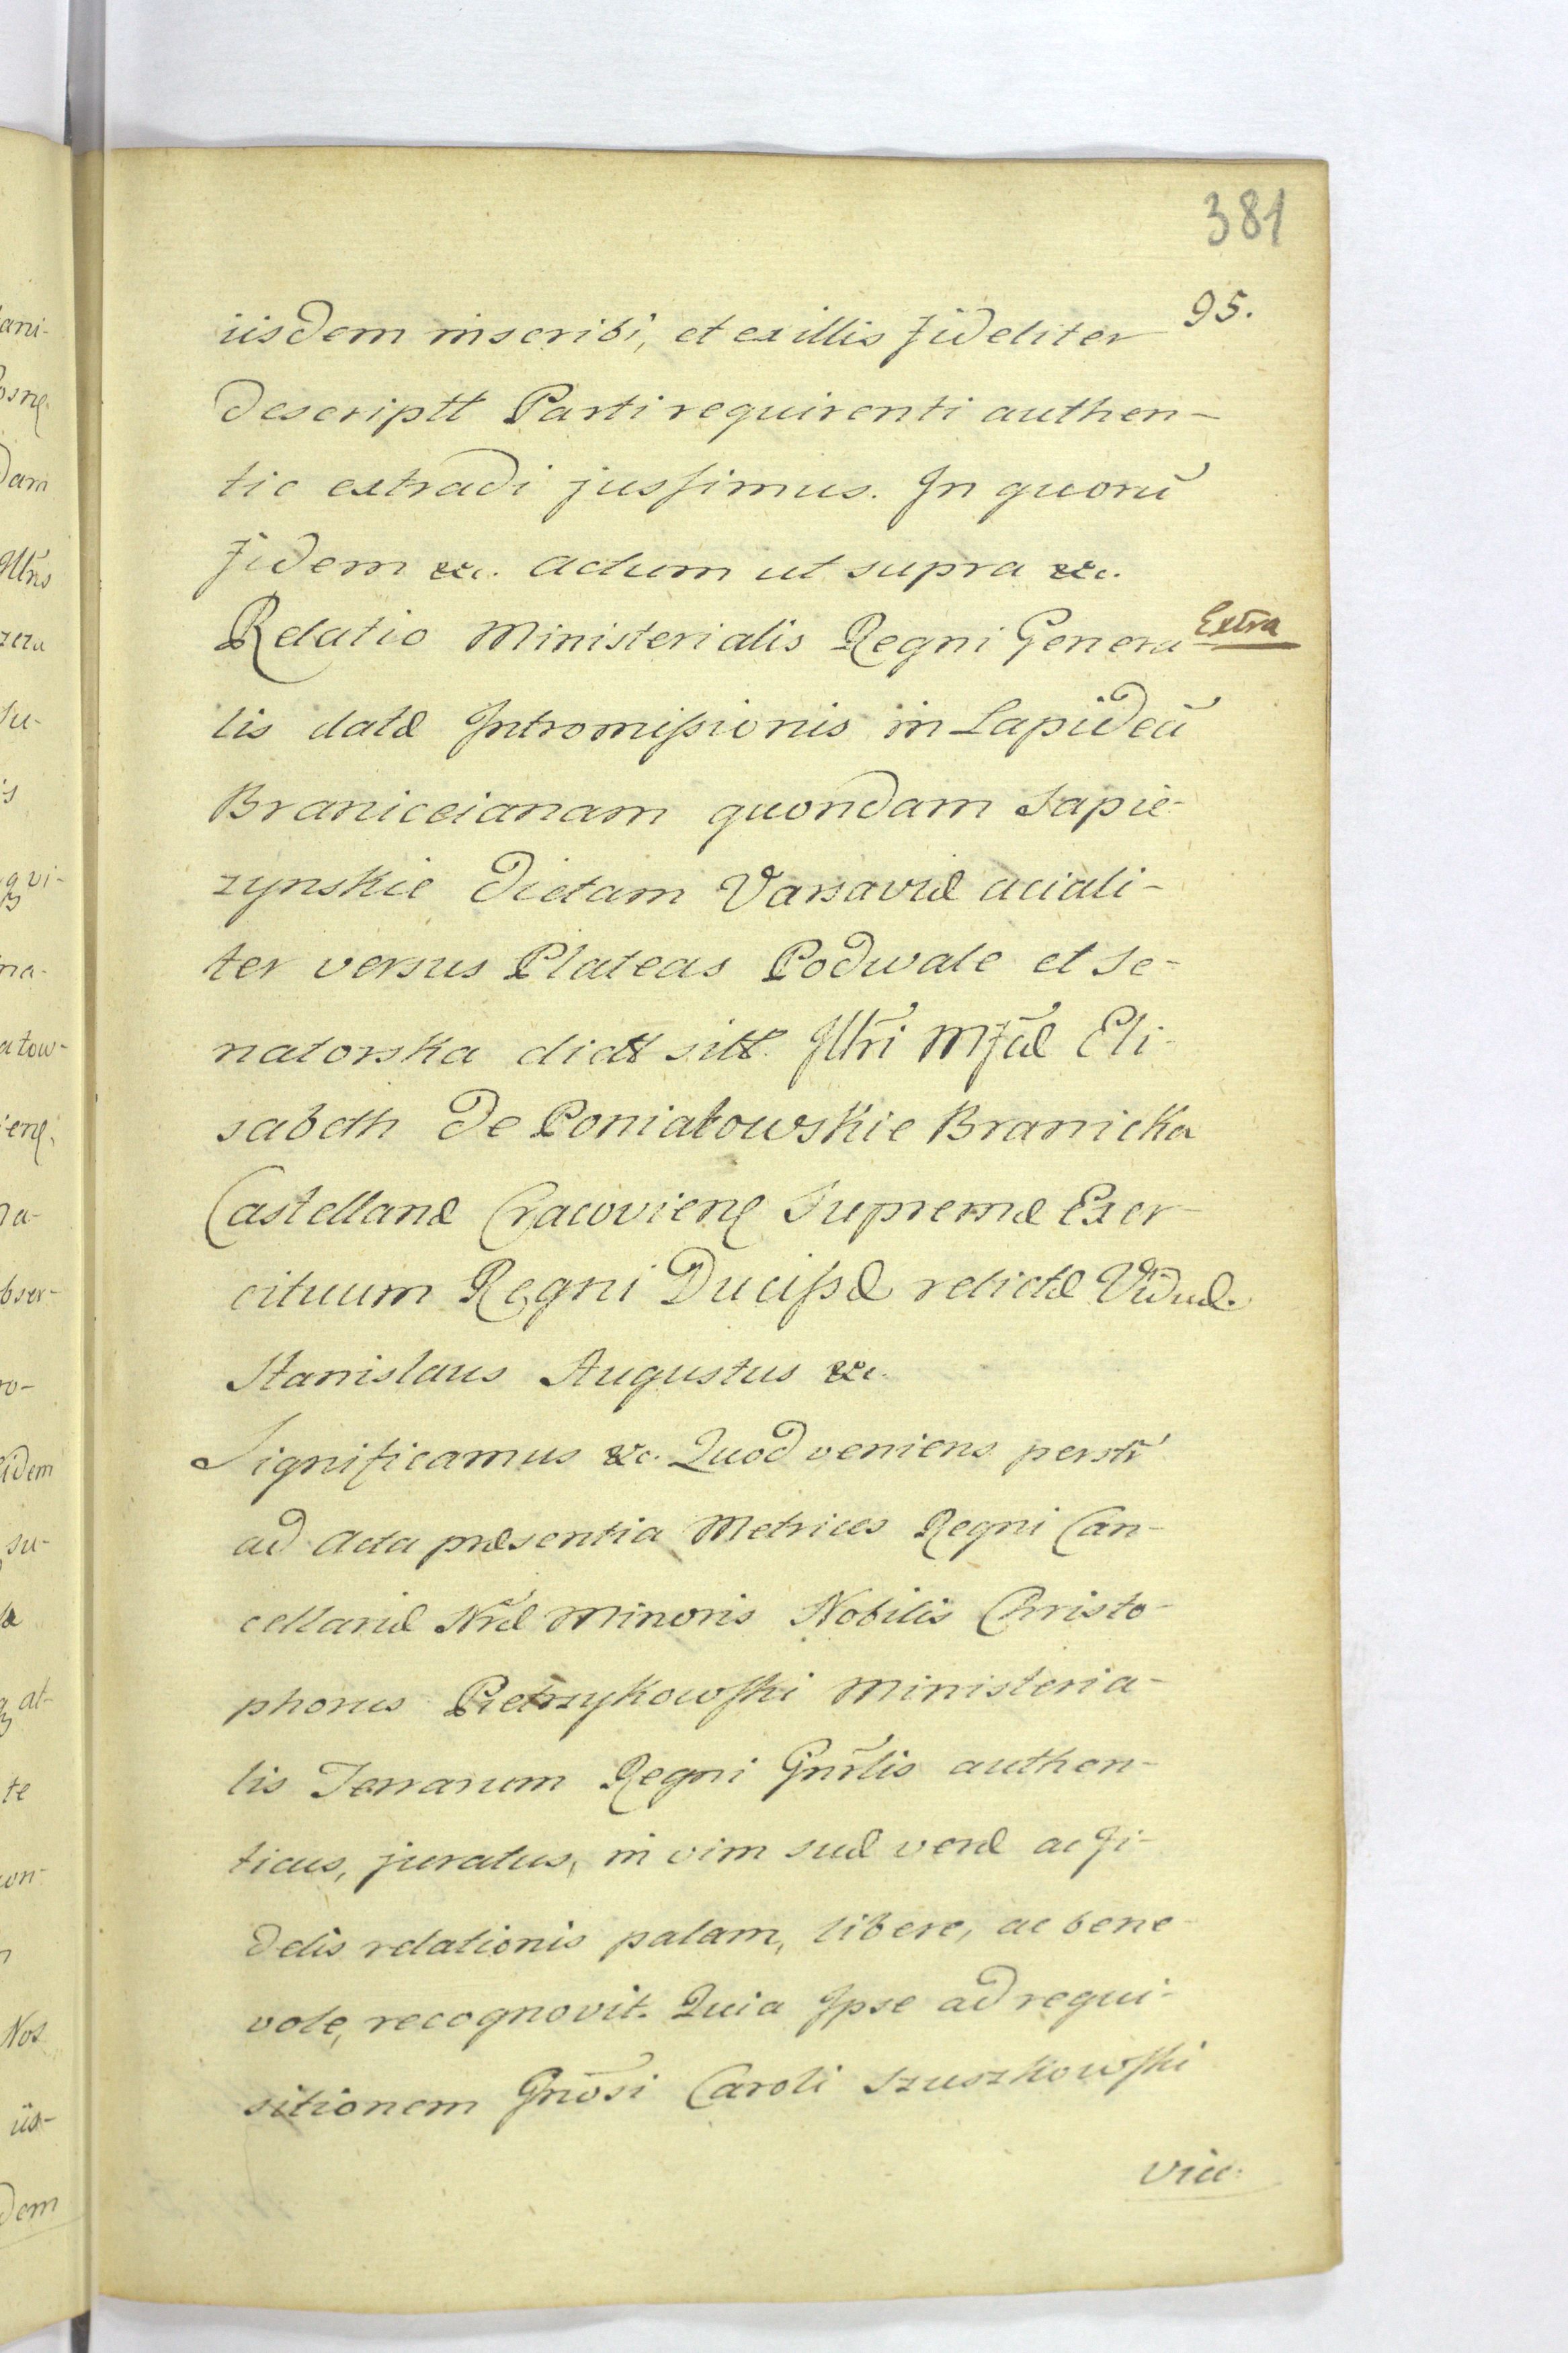 381
95.
iisdem inscribi, et ex illis fideliter
descriptt Parti requirenti authen-
tic extradi jussimus. In quorũ
fidem &c. Actum ut supra &c.
Extra
Relatio Ministerialis Regni Genera-
lis datæ Intromissionis in Lapideã
Braniceianam quondam Sapie-
zynskie dictam Varsaviæ aciali-
ter versus Plateas Podwale et Se-
natorska dictt sitt. Illŕi Mfcæ Eli-
sabeth de Poniatowskie Branicka
Castellanæ Cracovienę Supremæ Exer-
cituum Regni Ducissæ relictæ Viduæ.
Stanislaus Augustus &c.
Significamus &c. Quod veniens persłr
ad Acta præsentia Metrices Regni Can-
cellariæ Nræ Minoris Nobilis Christo-
phorus Pietrzykowski Ministeria-
lis Terrarum Regni Gnrlis authen-
ticus, juratus, in vim suæ veræ ac fi-
delis relationis palam, libere, ac bene-
vole, recognovit. Quia Ipse ad requi-
sitionem Gnosi Caroli Szuszkowski
vice:
ani-
osnę.
dam
Illris
Su-
is
qvi-
na-
atow-
ienę.
na-
bser-
ro-
idem
su-
at-
te
Nos
iis-
dem